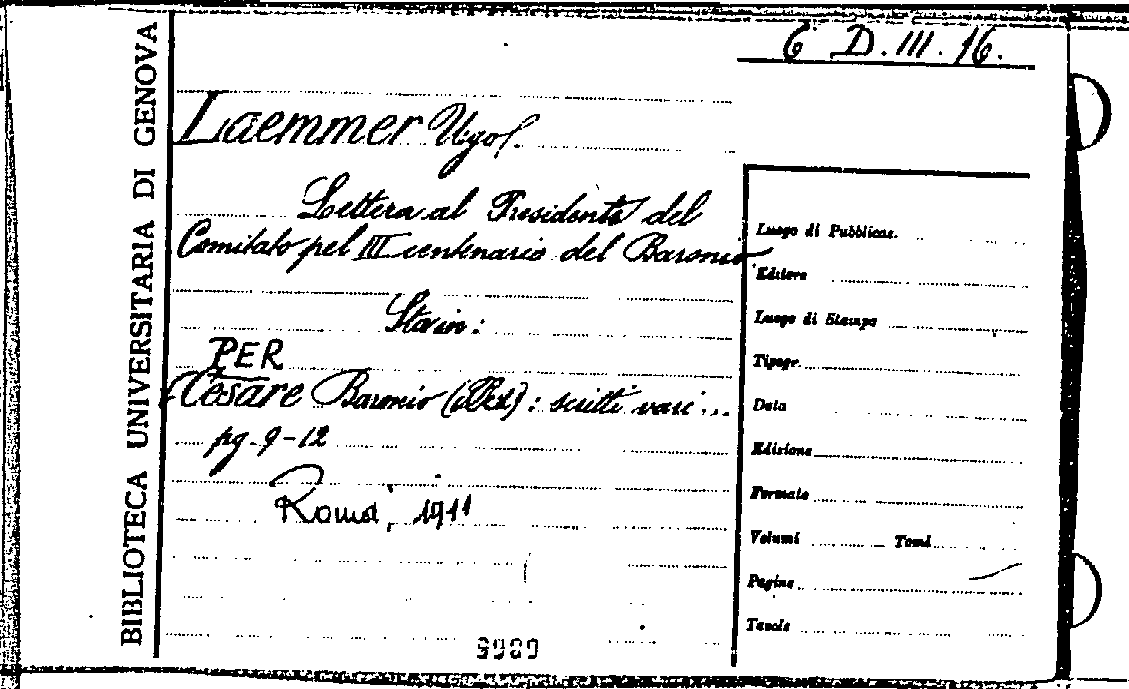 6 D. III. 16.
BIBLIOTECA UNIVERSITARIA DI GENOVA
Laemmer Ugo
Lettera al Presidente del
Comitato pel III centenario del Baronio
Sta in:
PER
Cesare Baronio : scritti vari...
pg. 9-12
Roma, 1911
Luogo di Pubblicaz.
Editore
Luogo di Stampa
Tipogr.
Data
Edizione
Formato
Volumi Tomi
Pagine
Tavole